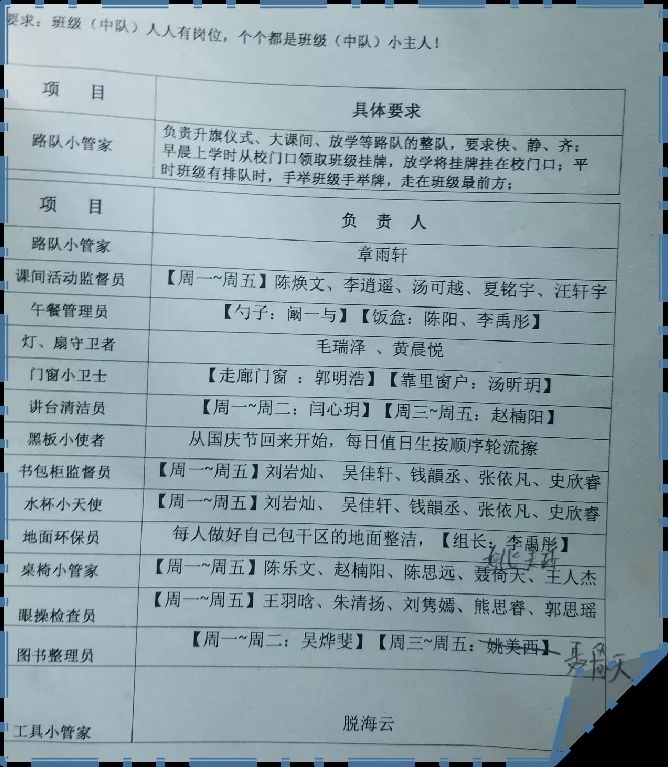 要求：班级（中队）人人有岗位，个个都是班级（中队）小主人！
项 目 具体要求
路队小管家 负责升旗仪式、大课间、放学等路队的整队，要求快、静、齐；
早晨上学时从校门口领取班级挂牌，放学将挂牌挂在校门口；平
时班级有排队时，手举班级手举牌，走在班级最前方；
项 目 负 责 人
路队小管家 章雨轩
课间活动监督员 【周一~周五】陈焕文、李逍遥、汤可越、夏铭宇、汪轩宇
午餐管理员 【勺子：阚一与】【饭盒：陈阳、李禹彤】
灯、扇守卫者 毛瑞泽 、黄晨悦
门窗小卫士 【走廊门窗 ：郭明浩】【靠里窗户：汤昕玥】
讲台清洁员 【周一~周二：闫心玥】【周三~周五：赵楠阳】
黑板小使者 从国庆节回来开始，每日值日生按顺序轮流擦
书包柜监督员 【周一~周五】刘岩灿、 吴佳轩、钱韻丞、张依凡、史欣睿
水杯小天使 【周一~周五】刘岩灿、 吴佳轩、钱韻丞、张依凡、史欣睿
地面环保员 每人做好自己包干区的地面整洁，【组长：李禹彤】
桌椅小管家 【周一~周五】陈乐文、赵楠阳、陈思远、聂倚天、王人杰
眼操检查员 【周一~周五】王羽晗、朱清扬、刘隽嫣、熊思睿、郭思瑶
图书整理员 【周一~周二：吴烨斐】【周三~周五：姚美西】
工具小管家 脱海云